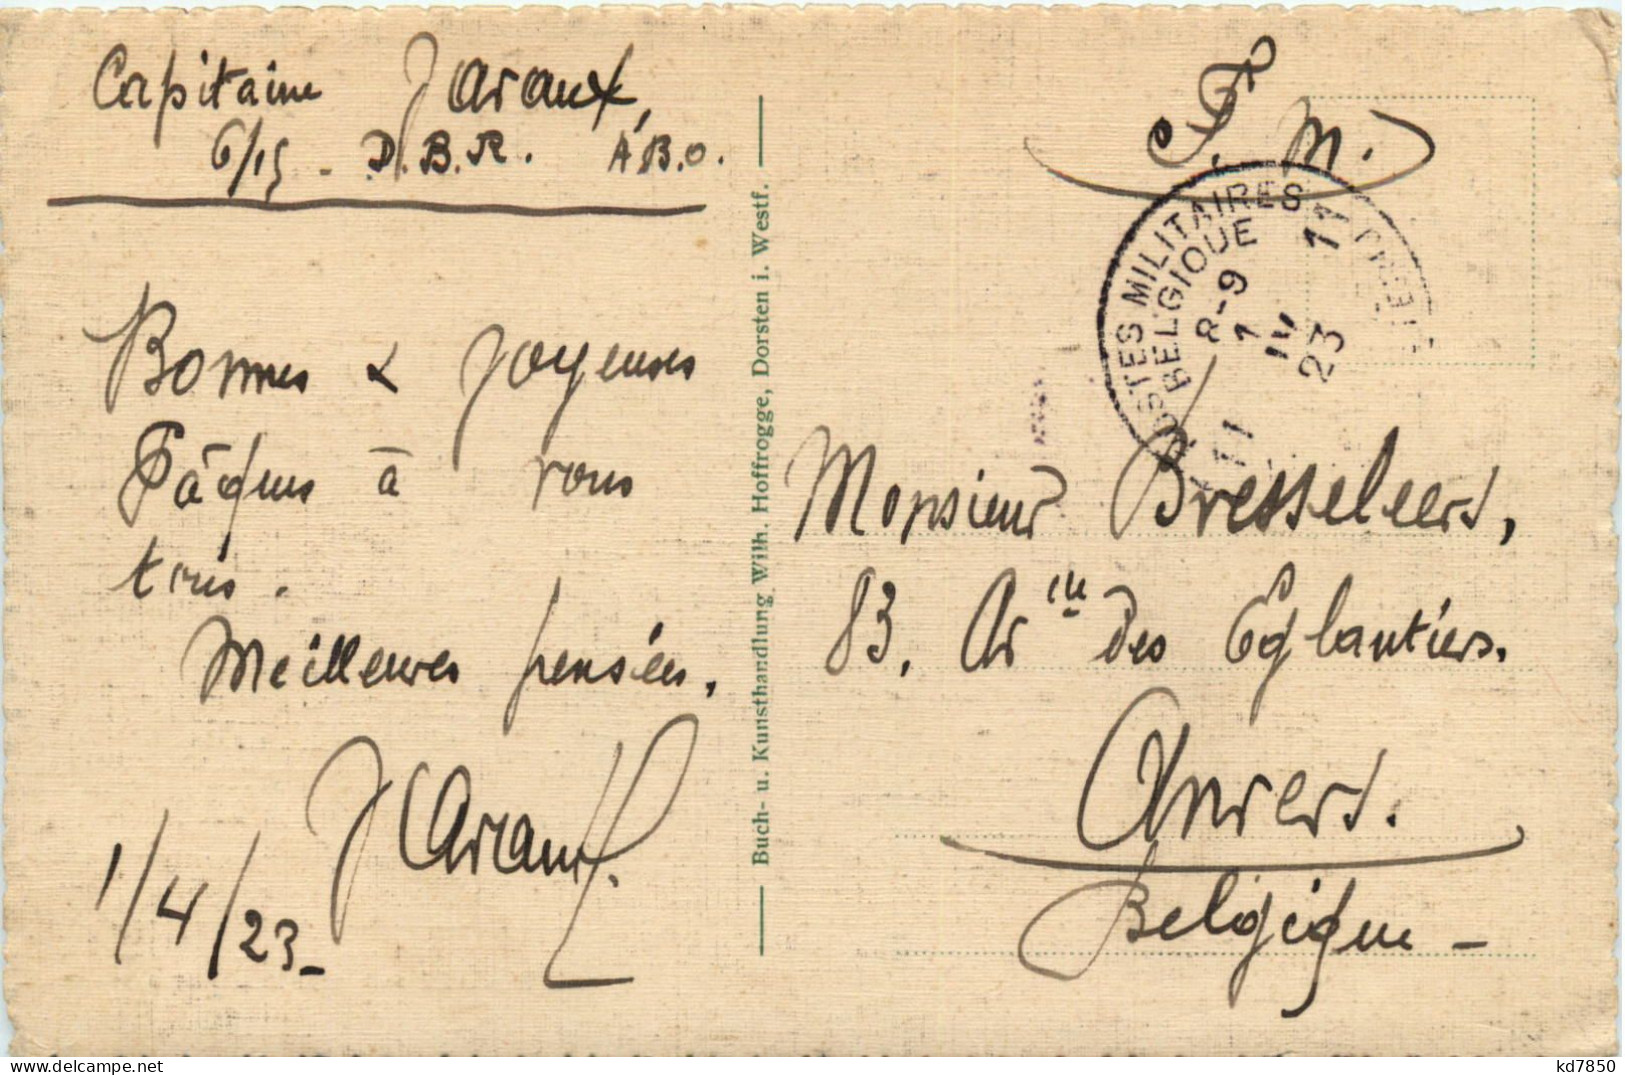 Capitaine J Araux,
6/15 - D.B.R. A.B.O.
Bonnes & Joyeuses
Pâques à vous
tous.
Meilleures pensées.
J Araux.
1/4/23_
Buch- u. Kunsthandlung Wilh. Hoffrogge, Dorsten i. Westf.
F. M.
POSTES MILITAIRES
BELGIQUE
8-9
1
IV
23
11
11
Monsieur Bresseleers,
83, Av ue des Eglantiers.
Anvers.
Belgique -
kd7850